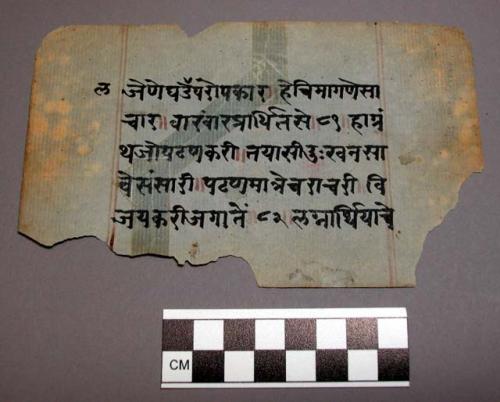 ल जेणेघडेंपरोपकार हेचिमागणेसा
चार वारंवारप्रार्थितसे ८१ हाग्रं
थजोपठणकरी तयासीदुःखनसा
वेसंसारी पठणमात्रेचराचरी वि
जयकरीजगातें ८२ लग्नार्थियाचे
CM